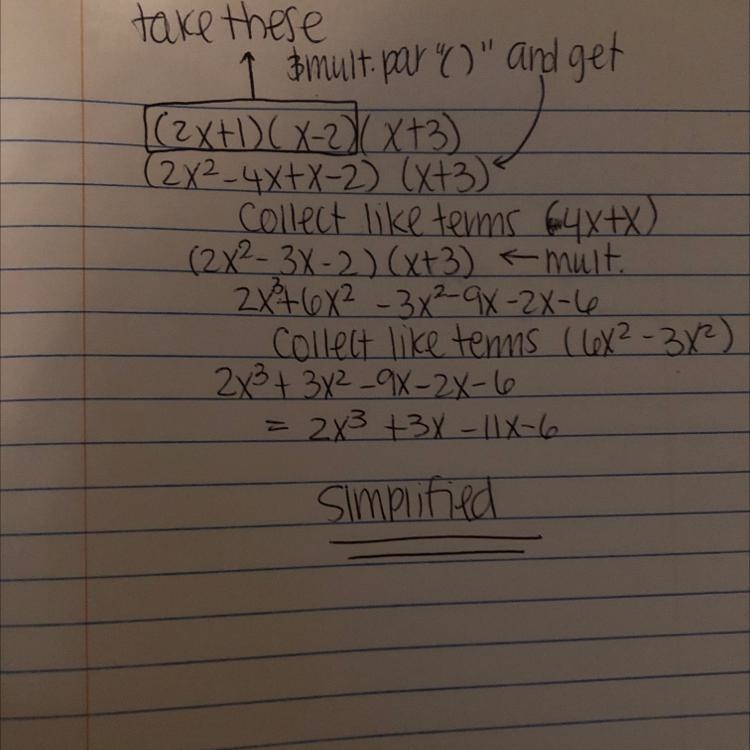 take these
& mult. par "()" and get
(2x+1)(x-2)(x+3)
(2x²-4x+x-2) (x+3)
Collect like terms (-4x+x)
(2x²-3x-2)(x+3) ← mult.
2x³+6x² -3x²-9x-2x-6
Collect like terms (6x²-3x²)
2x³+3x²-9x-2x-6
= 2x³ +3x-11x-6
Simplified